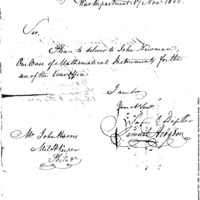 War department 8th Novr 1800.
Sir,
Please to deliver to John Newman,
One Case of Mathematical Instruments for the
use of the War Office.
I am Sir
Your Obt Servt
Samuel Hodgdon
Mr John Harris
Mil. St Keeper
Phila